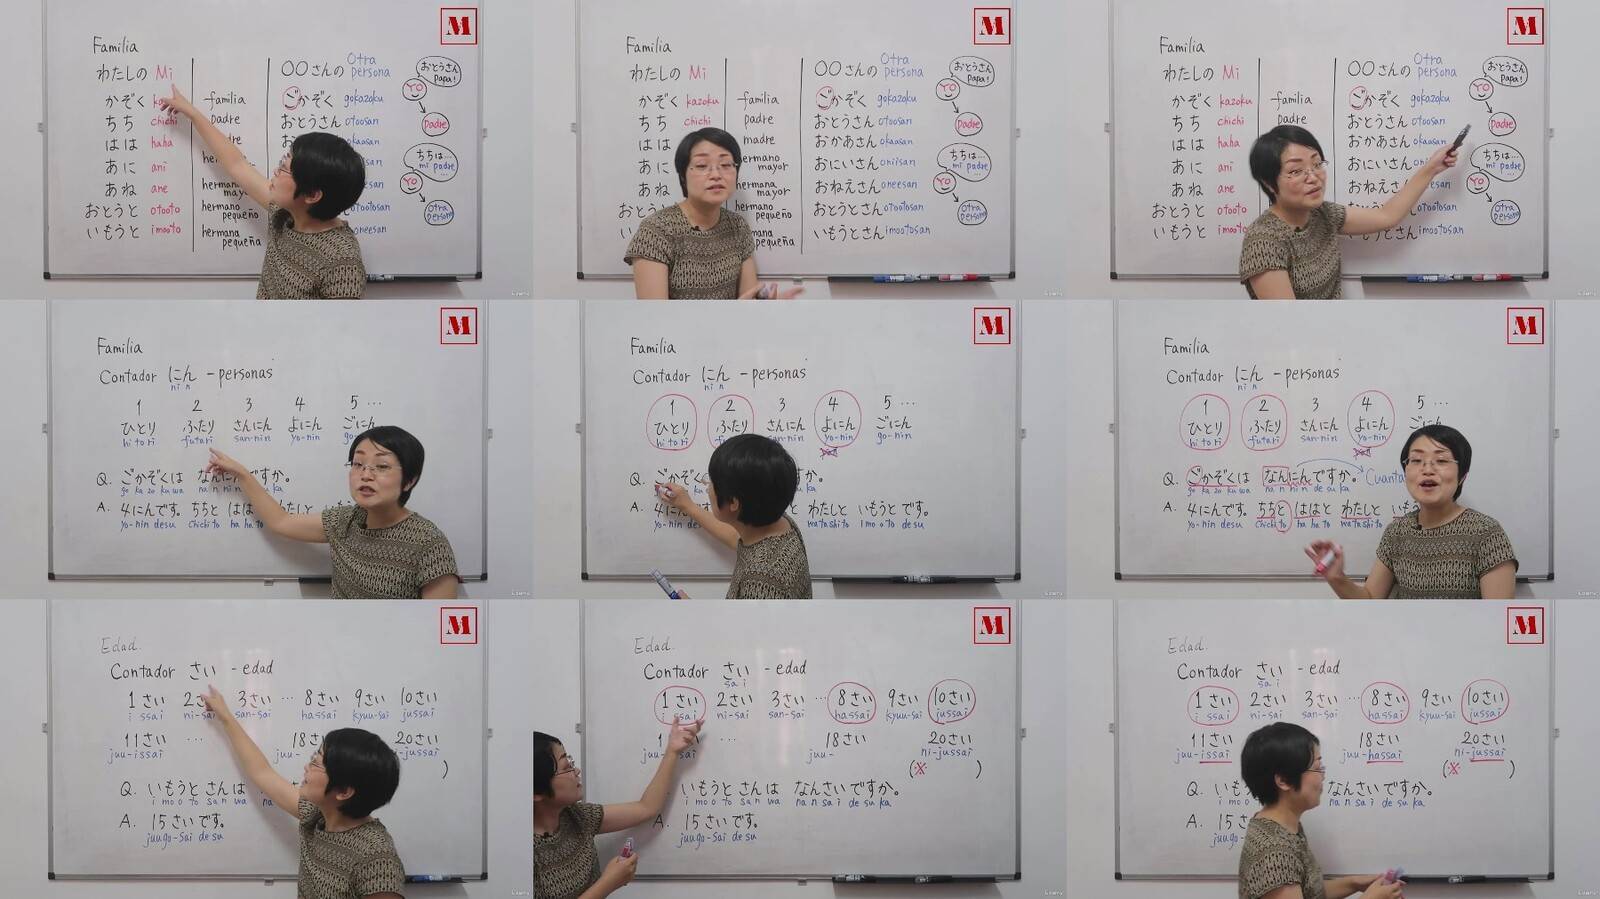 M
Familia
わたしの Mi
〇〇さんの Otra persona
おとうさん papa!
かぞく
familia
ごかぞく gokazoku
YO
ちち chichi
padre
おとうさん otoosan
Padre
はは haha
あに ani
ちちは… mi padre …
あね ane
hermana mayor
YO
おとうと otooto
hermano pequeño
Otra persona
いもうと imooto
hermana pequeña
M
Familia
わたしの Mi
〇〇さんの Otra persona
おとうさん papa!
かぞく kazoku
familia
ごかぞく gokazoku
YO
ちち chichi
padre
おとうさん otoosan
Padre
はは
madre
おかあさん okaasan
あに
hermano mayor
おにいさん oniisan
ちちは… mi padre …
あね
hermana mayor
おねえさん oneesan
YO
hermano pequeño
おとうとさん otootosan
Otra persona
いもうと
hermana pequeña
いもうとさん imootosan
M
Familia
わたしの Mi
〇〇さんの Otra persona
おとうさん papa!
かぞく kazoku
familia
ごかぞく gokazoku
YO
ちち chichi
padre
おとうさん otoosan
Padre
はは haha
おかあさん okaasan
あに ani
おにいさん
ちちは… mi padre …
あね ane
おねえさん
YO
おとうと otooto
おとうとさん otootosan
Otra persona
いもうと imooto
いもうとさん imootosan
M
Familia
Contador にん - personas
ni n
1 2 3 4 5 …
ひとり ふたり さんにん よにん ごにん
hitori futari san-nin yo-nin
Q. ごかぞくは なんにんですか。
go ka zo ku wa
A. 4にんです。ちちと ははと
yo-nin desu chichi to ha ha to
M
Familia
Contador にん - personas
ni n
1 2 3 4 5 …
ひとり ふたり さんにん よにん ごにん
hitori futari san-nin yo-nin go-nin
Q. ごかぞく
A. 4にん わたしと いもうとです。
watashi to imooto desu
M
Familia
Contador にん - personas
ni n
1 2 3 4 5 …
ひとり ふたり さんにん よにん
hitori futari san-nin yo-nin
Q. ごかぞくは なんにんですか。
go ka zo ku wa na n ni n de su ka
A. 4にんです。ちちと ははと わたしと
yo-nin desu chichi to ha ha to watashi to
M
Edad.
Contador さい - edad
1さい 2さい 3さい … 8さい 9さい 10さい
i ssai ni-sai san-sai hassai kyuu-sai jussai
11さい … 18さい 20さい
juu-issai juu- -jussai
)
Q. いもうとさんは
i mo o to sa n wa na
A. 15さいです。
juugo-sai desu
M
Edad.
Contador さい - edad
sa i
1さい 2さい 3さい … 8さい 9さい 10さい
i ssai ni-sai san-sai hassai kyuu-sai jussai
… 18さい 20さい
juu- ni-jussai
(※ )
いもうとさんは なんさいですか。
i mo o to sa n wa na n sa i de su ka
A. 15さいです。
juugo-sai desu
M
Edad.
Contador さい - edad
sa i
1さい 2さい 3さい … 8さい 9さい 10さい
i ssai ni-sai san-sai hassai kyuu-sai jussai
11さい 18さい 20さい
juu-issai juu-hassai ni-jussai
(※ )
Q. いも なんさいですか。
na n sa i de su ka
A. 15